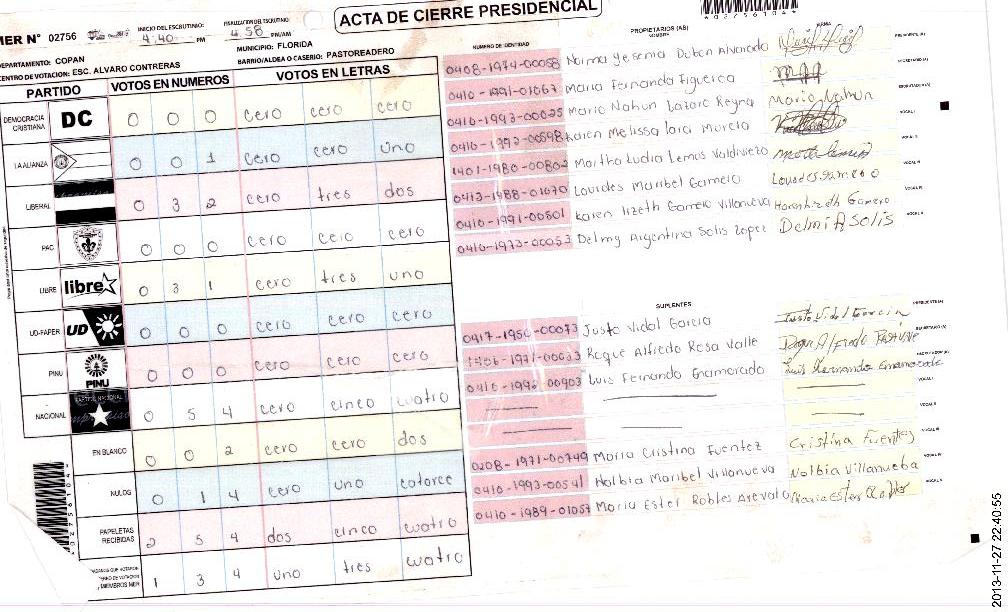 ACTA DE CIERRE PRESIDENCIAL
MER N° 02756
INICIO DEL ESCRUTINIO: 4:40 PM
FINALIZACION DEL ESCRUTINIO: 4:58 PM/AM
DEPARTAMENTO: COPAN
MUNICIPIO: FLORIDA
CENTRO DE VOTACION: ESC. ALVARO CONTRERAS
BARRIO/ALDEA O CASERIO: PASTOREADERO
PARTIDO VOTOS EN NUMEROS VOTOS EN LETRAS
DEMOCRACIA CRISTIANA DC 0 0 0 cero cero cero
LA ALIANZA 0 0 1 cero cero uno
LIBERAL 0 3 2 cero tres dos
PAC 0 0 0 cero cero cero
LIBRE libre 0 3 1 cero tres uno
UD-FAPER UD 0 0 0 cero cero cero
PINU PINU 0 0 0 cero cero cero
NACIONAL PARTIDO NACIONAL 0 5 4 cero cinco cuatro
EN BLANCO 0 0 2 cero cero dos
NULOS 0 1 4 cero uno catorce
PAPELETAS RECIBIDAS 2 5 4 dos cinco cuatro
MIEMBROS MER 1 3 4 uno tres cuatro
NUMERO DE IDENTIDAD
PROPIETARIOS (AS)
NOMBRE
FIRMA
0408-1974-00058 Norma Yesenia Dubon Alvarado
0410-1991-01067 Maria Fernanda Figueroa
0410-1993-00025 Mario Nahun Lazaro Reyna Mario Nahun
0410-1992-00598 Karen Melissa Lara Murcia
1401-1980-00802 Martha Ludia Lemus Valdiviezo
0413-1988-01070 Lourdes Maribel Gamero Lourdes Gamero
0410-1991-00501 Karen Lizeth Gamero Villanueva
0410-1973-00053 Delmy Argentina Solis Lopez Delmi A Solis
SUPLENTES
0417-1950-00073 Justo Vidal Garcia Justo Vidal Garcia
Roque Alfredo Rosa Valle
0410-1992-00903 Luis Fernando Enamorado
0208-1971-00749 Maria Cristina Fuentez Cristina Fuentes
0410-1993-00541 Nolbia Maribel Villanueva Nolbia Villanueba
0410-1989-01057 Maria Ester Robles Arevalo
2013-11-27 22:40:55